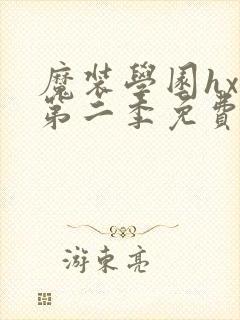 魔裝學園hx
第二季免費
游東亮